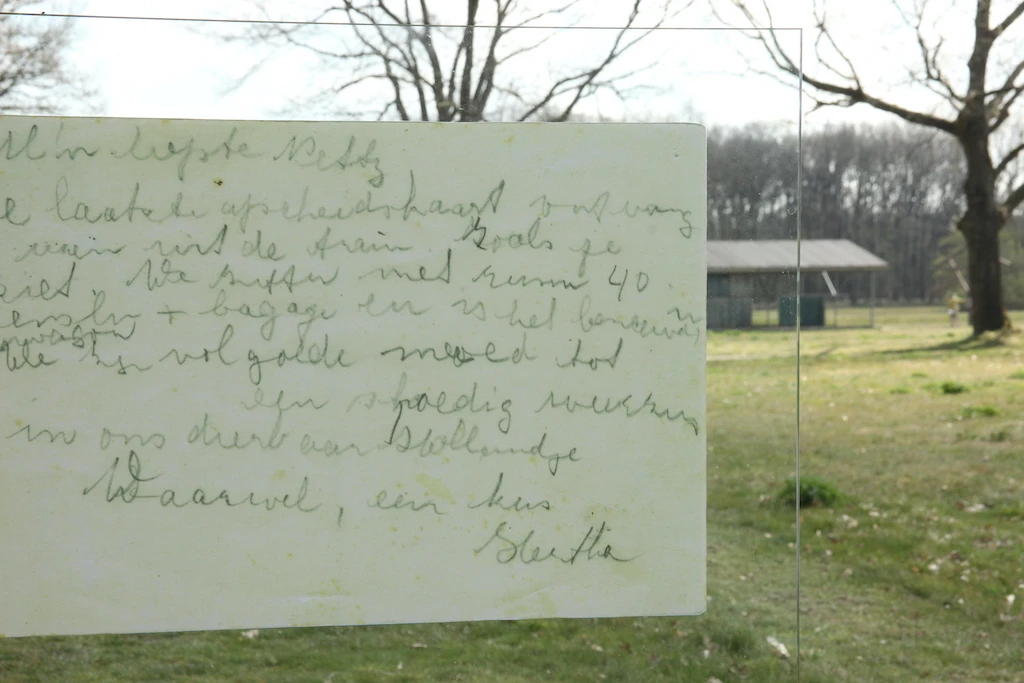 M'n liefste Netty
e laatste afscheidskaart ontvang
uit de trein, Zoals je
ziet. We zitten met ruim 40
ensen + bagage en is het benauwd
We zijn vol goede moed tot
een spoedig weerzien
in ons dierbaar Hollandje
Vaarwel, een kus